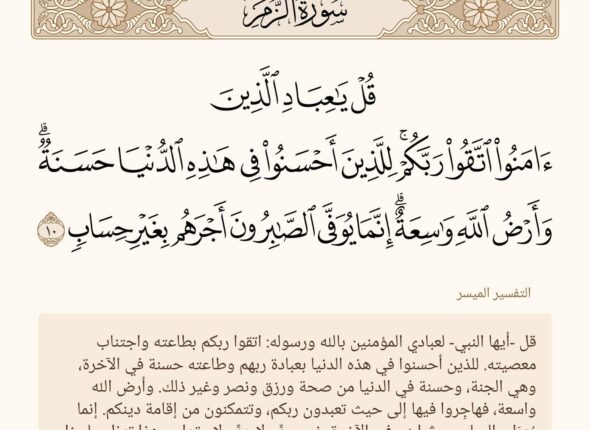 سُورَةُ الزُّمَرِ
قُلْ يَٰعِبَادِ ٱلَّذِينَ
ءَامَنُوا۟ ٱتَّقُوا۟ رَبَّكُمْ ۚ لِلَّذِينَ أَحْسَنُوا۟ فِى هَٰذِهِ ٱلدُّنْيَا حَسَنَةٌ ۗ
وَأَرْضُ ٱللَّهِ وَٰسِعَةٌ ۗ إِنَّمَا يُوَفَّى ٱلصَّٰبِرُونَ أَجْرَهُم بِغَيْرِ حِسَابٍ ١٠
التفسير الميسر
قل -أيها النبي- لعبادي المؤمنين بالله ورسوله: اتقوا ربكم بطاعته واجتناب
معصيته. للذين أحسنوا في هذه الدنيا بعبادة ربهم وطاعته حسنة في الآخرة،
وهي الجنة، وحسنة في الدنيا من صحة ورزق ونصر وغير ذلك. وأرض الله
واسعة، فهاجِروا فيها إلى حيث تعبدون ربكم، وتتمكنون من إقامة دينكم. إنما